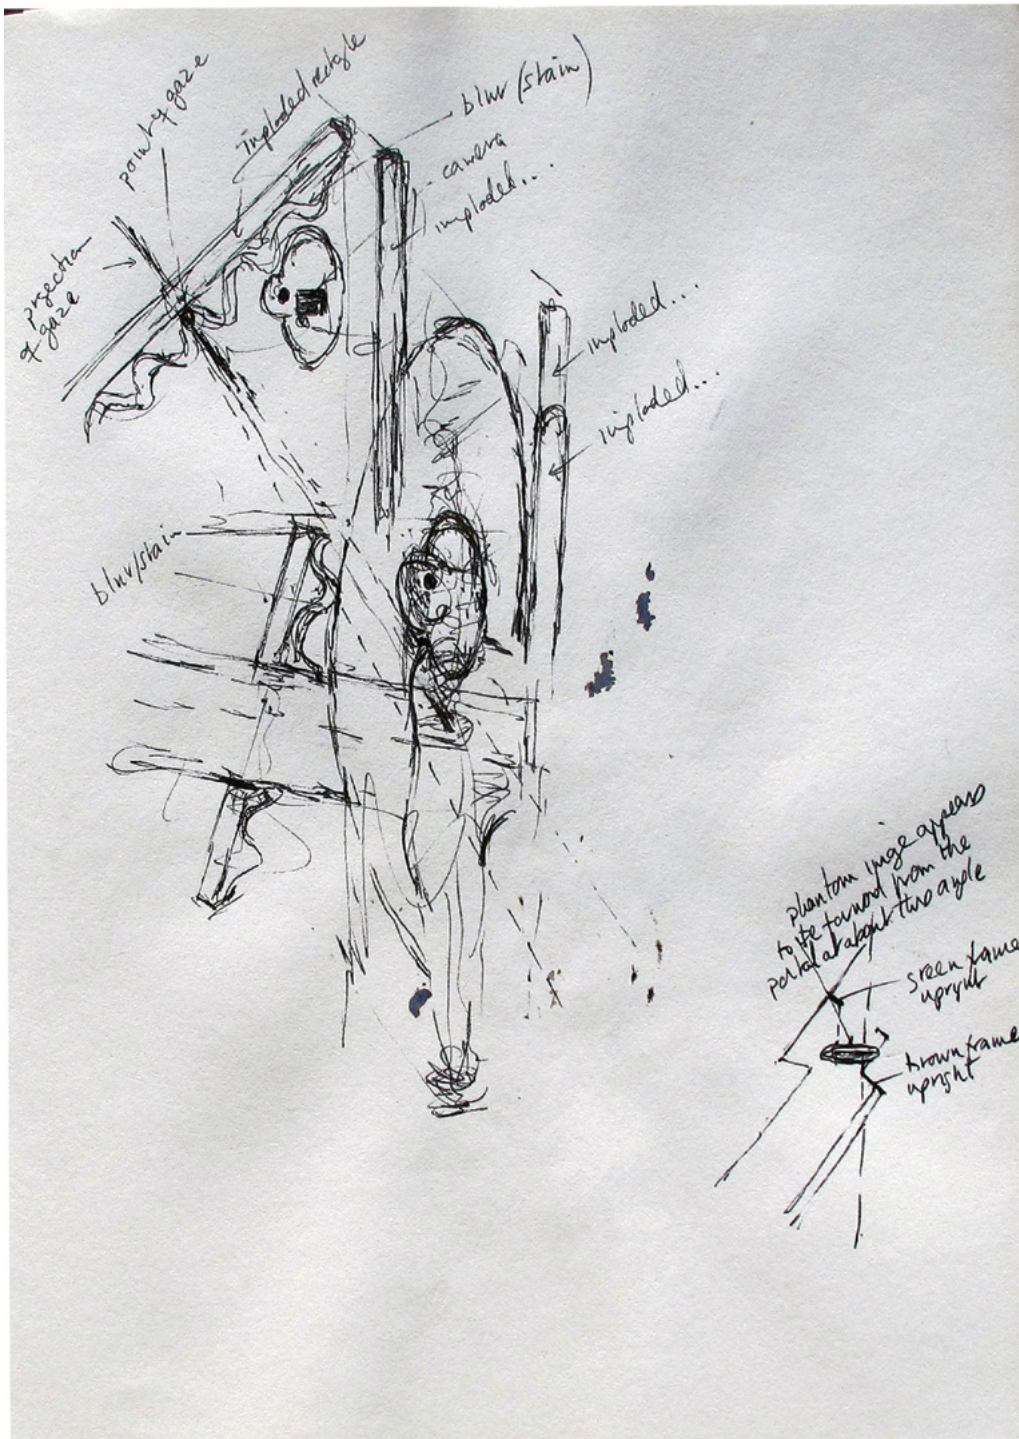 point of gaze
Imploded rectangle
blur (stain)
camera
imploded...
projection
of gaze
imploded...
imploded...
blur/stain
phantom image appears
to be formed from the
portal at about this angle
green frame
upright
brown frame
upright